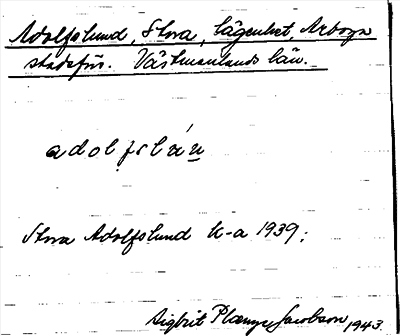 Adolfslund, Stora, lägenhet, Arboga
stadsförs. Västmanlands län.
adolfslún
Stora Adolfslund K-a 1939.
Sigbrit Jacobson 1943.